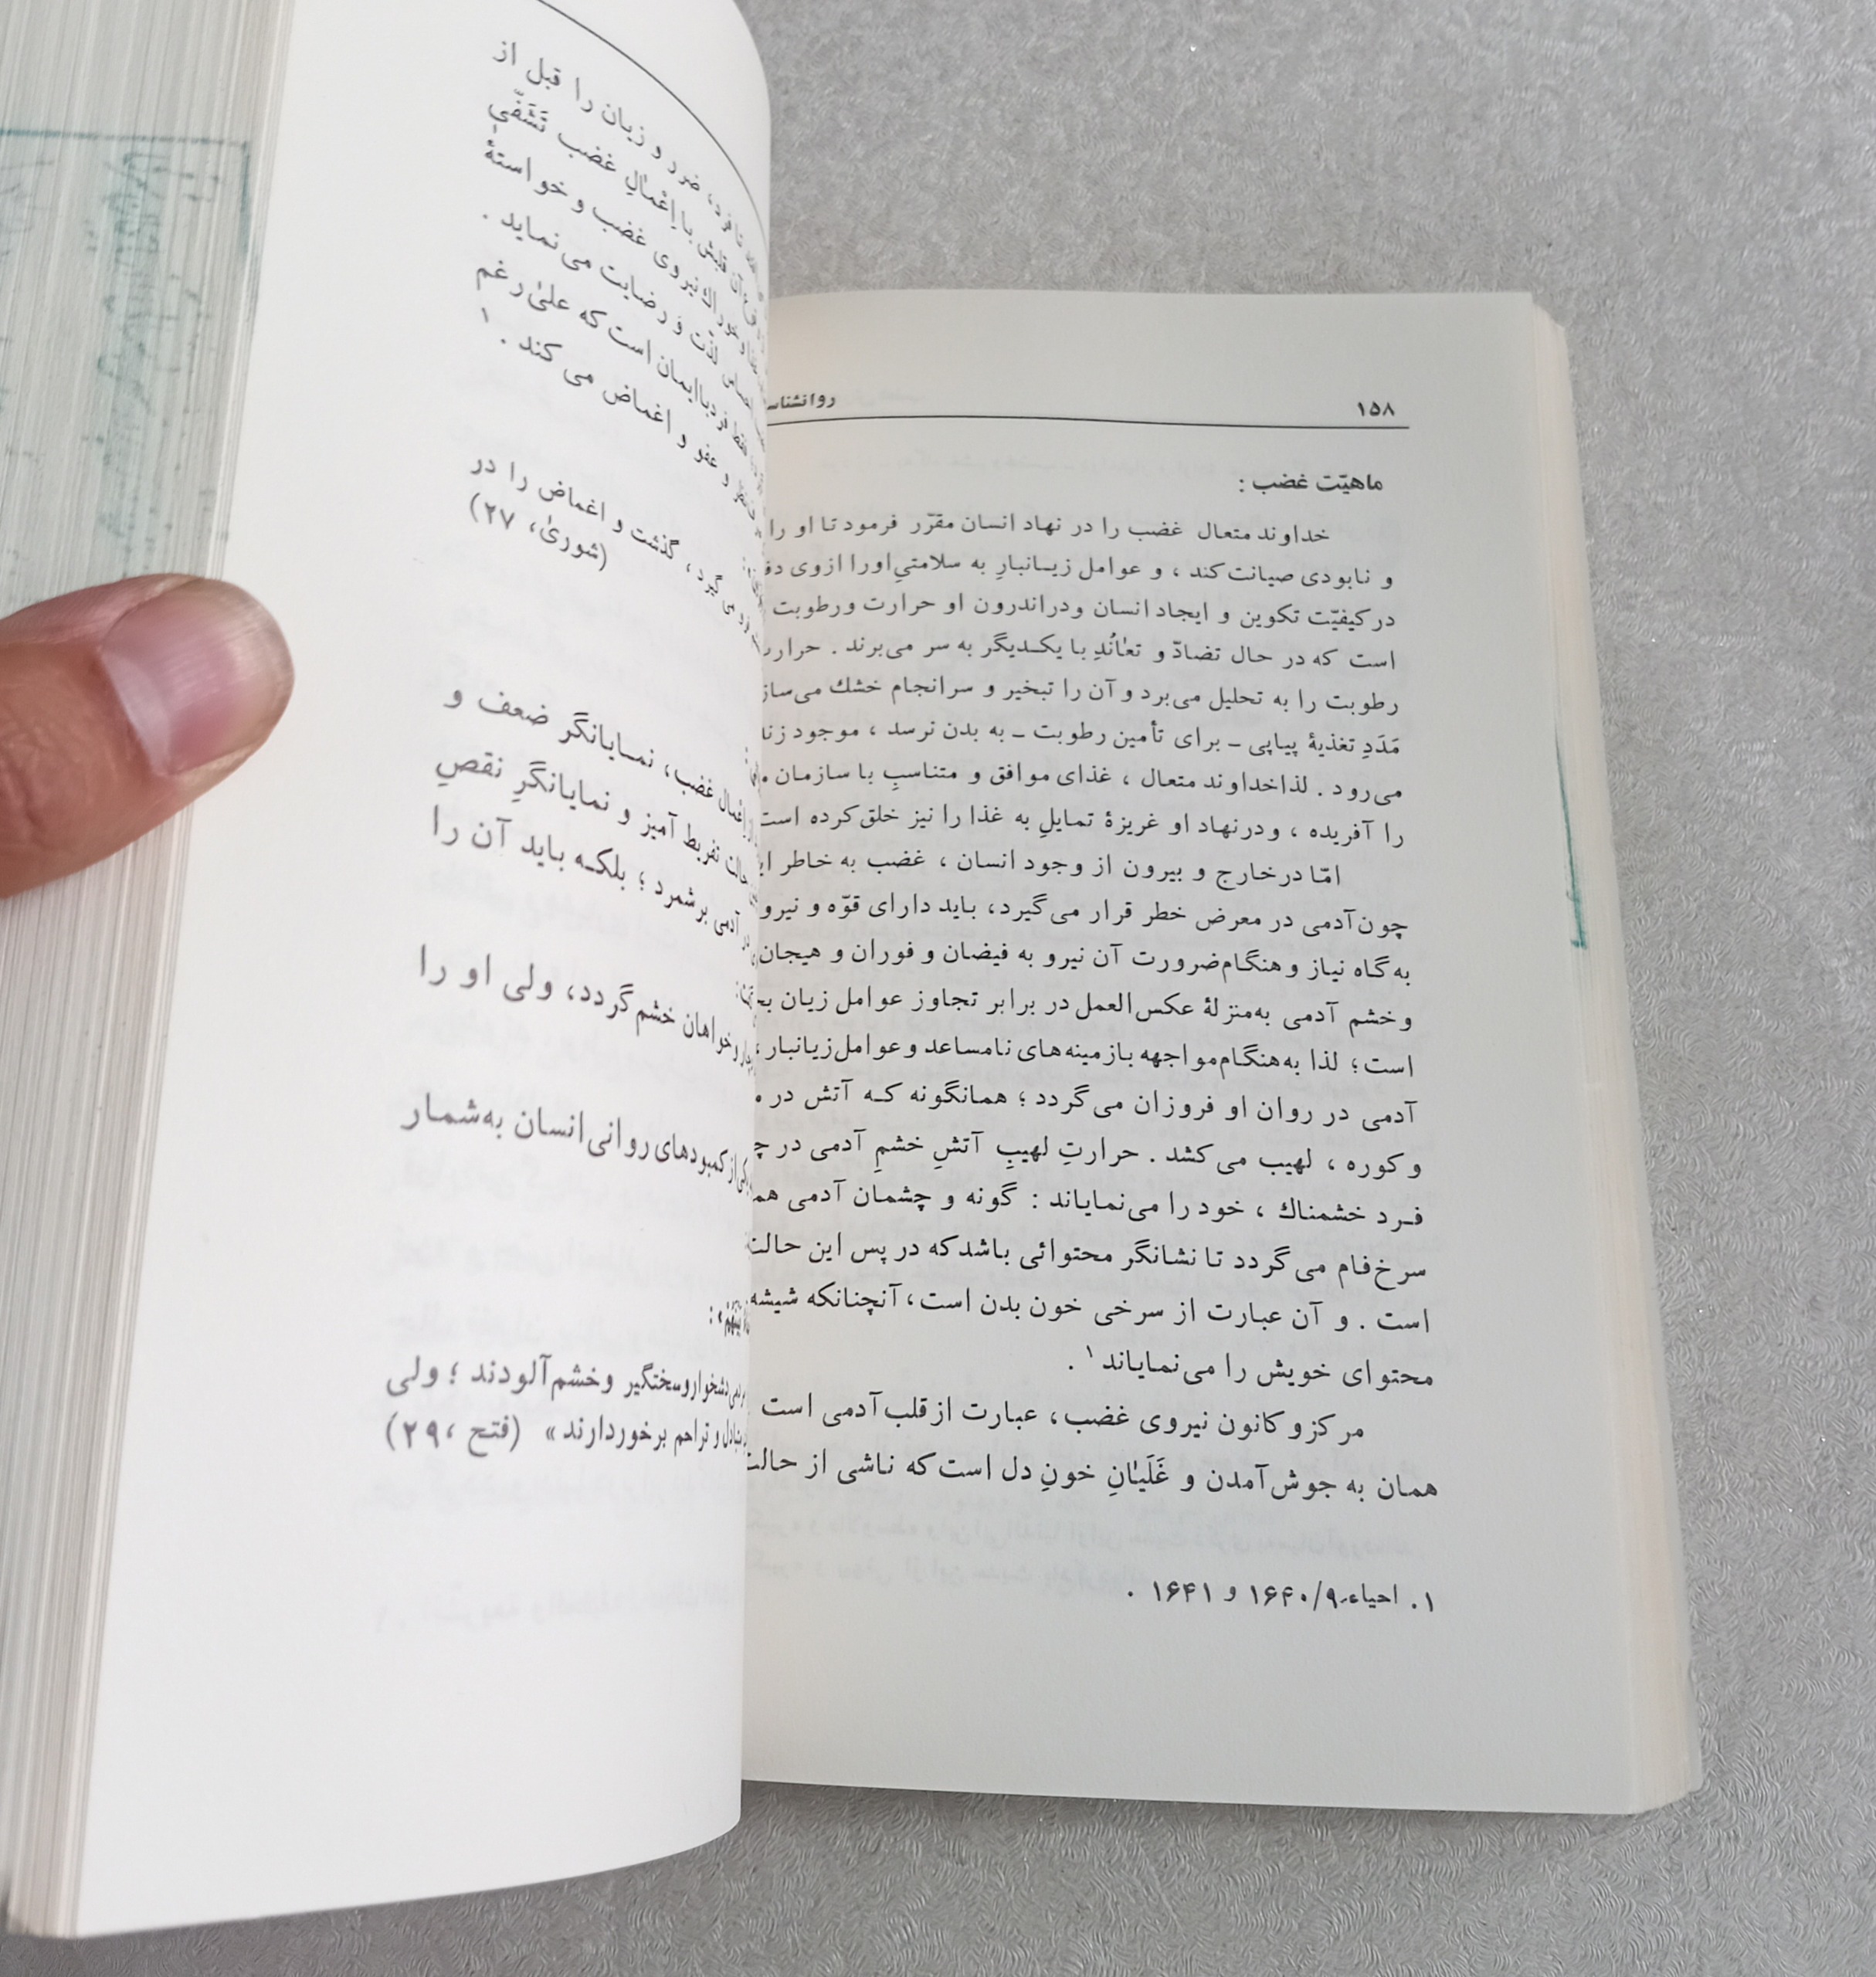 ۱۵۸
ماهیّت غضب :
خداوند متعال غضب را در نهاد انسان مقرّر فرمود تا او را
و نابودی صیانت کند ، و عوامل زیـانبارِ به سلامتیِ او را از وی
در کیفیّت تکوین و ایجاد انسان و در اندرون او حرارت و رطوبت
است که در حال تضادّ و تعانُدِ با یکـدیگر به سر می‌برند .
رطوبت را به تحلیل می‌برد و آن را تبخیر و سرانجام خشك
مَدَدِ تغذیهٔ پیاپی ـ برای تأمین رطوبت ـ به بدن نرسد ، موجود
می‌رود . لذا خداوند متعال ، غذای موافق و متناسبِ با سازمان
را آفریده ، و در نهاد او غریزهٔ تمایلِ به غذا را نیز خلق کرده است
امّا در خارج و بیرون از وجود انسان ، غضب به خاطر
چون آدمی در معرض خطر قرار می‌گیرد، باید دارای قوّه و
به گاه نیاز و هنگام ضرورت آن نیرو به فیضان و فوران و هیجان
و خشم آدمی به‌منزلهٔ عکس‌العمل در برابر تجاوز عوامل زیان
است ؛ لذا به هنگام مواجهه با زمینه‌های نامساعد و عوامل زیانبار ،
آدمی در روان او فروزان می‌گردد ؛ همانگونه کـه آتش در
و کوره ، لهیب می‌کشد . حرارتِ لهیبِ آتشِ خشمِ آدمی در
فـرد خشمناك ، خود را می‌نمایاند : گونه و چشمان آدمی
سرخ‌فام می‌گردد تا نشانگر محتوائی باشد که در پس این
است . و آن عبارت از سرخی خون بدن است، آنچنانکه شیشه
محتوای خویش را می‌نمایاند۱ .
مرکز و کانون نیروی غضب، عبارت از قلب آدمی است
همان به جوش آمدن و غَلَیانِ خونِ دل است که ناشی از
۱. احیاء ۱۶۴۰/۹ و ۱۶۴۱ .
تا فرد، ضرر و زیان را قبل از
آن قلبش با اِعْمالِ غضب تَشَفّیِ
نیروی غضب و خواستهٔ
لذّت و رضایت می‌نماید .
فقط فرد باایمان است که علیٰ رغم
و عفو و اغماض می‌کند .۱
می‌گیرد ، گذشت و اغماض را در
(شوریٰ، ۲۷)
غضب، نمـایانگر ضعف و
حالت تفریط آمیز و نمایانگرِ نقصِ
در آدمی برشمرد ؛ بلکـه باید آن را
و خواهان خشم گردد، ولی او را
یکی از کمبودهای روانی انسان به‌شمار
و سختگیر و خشم‌آلودند ؛ ولی
و تراحم برخوردارند» (فتح ،۲۹)